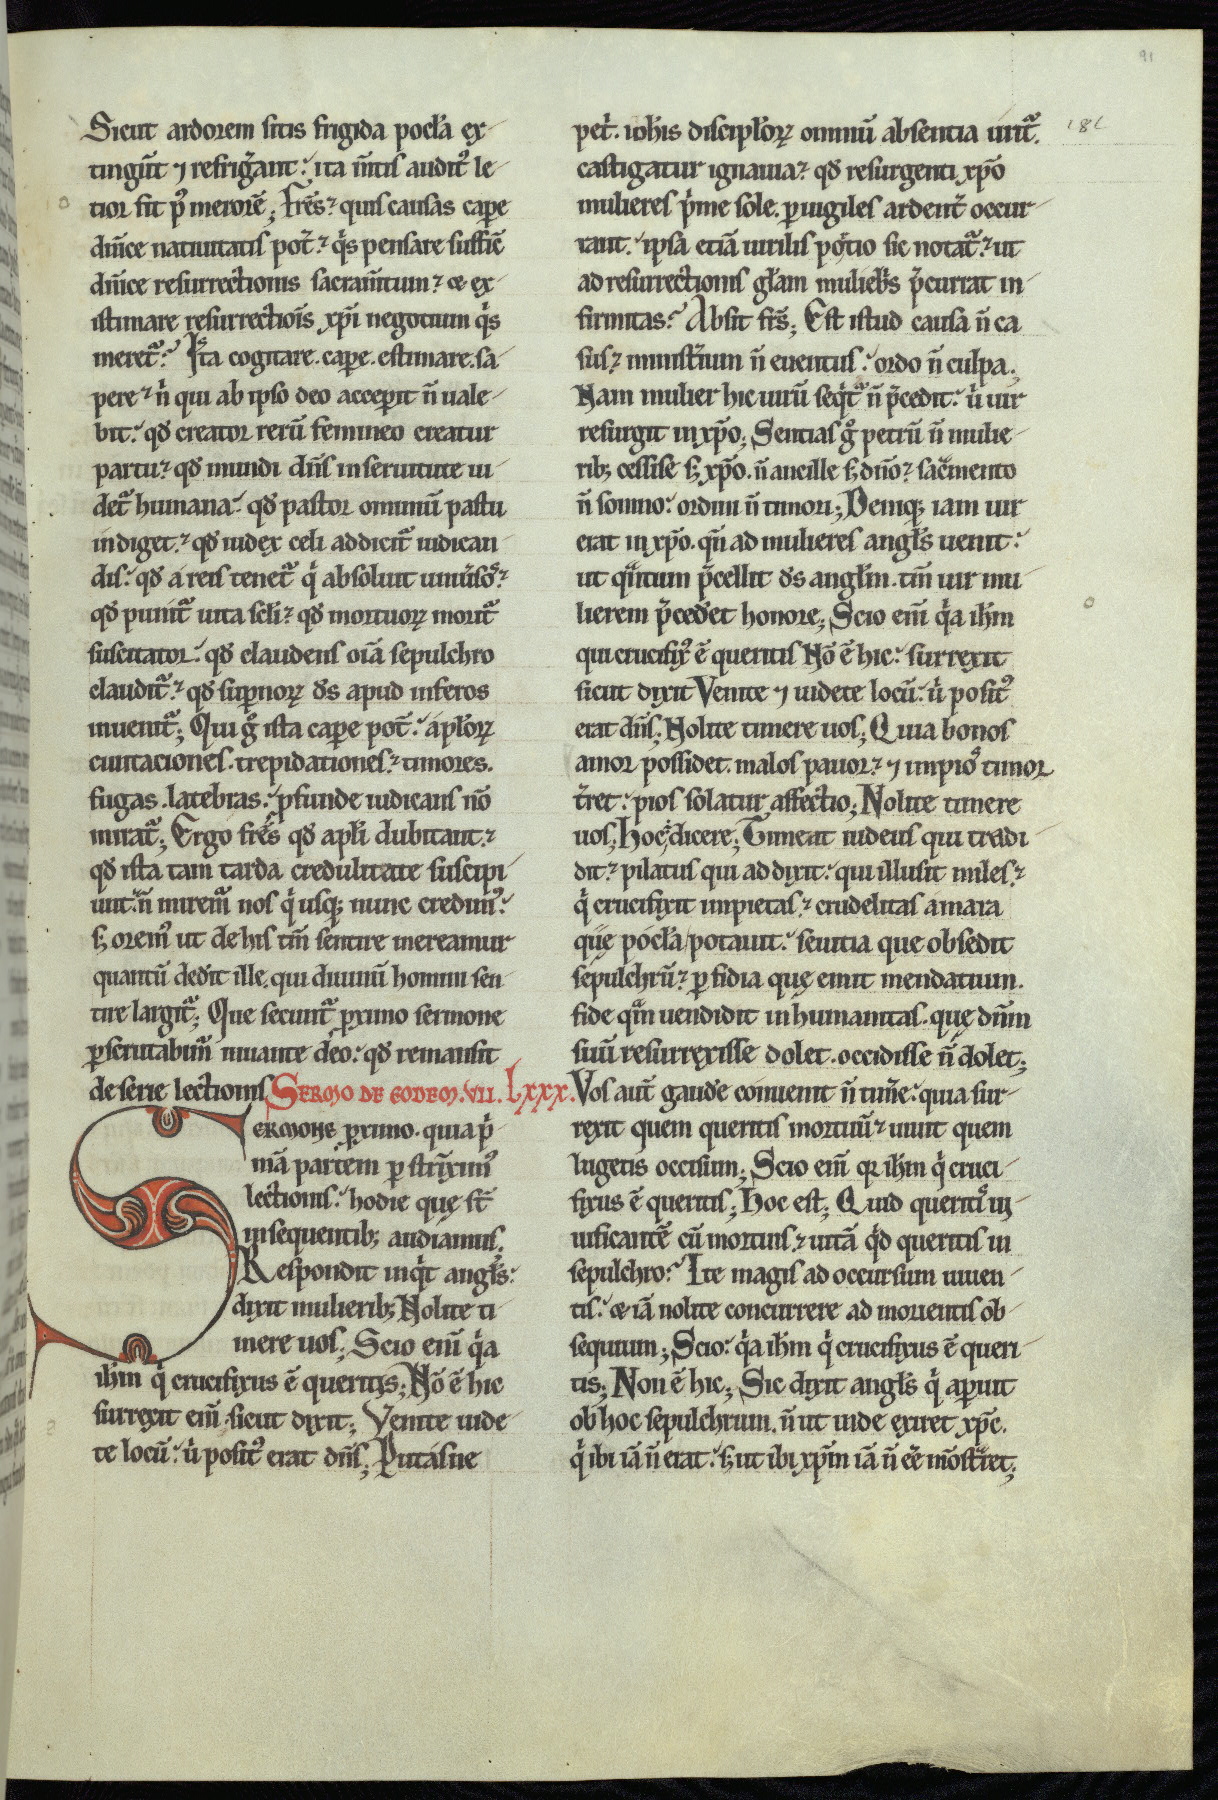 91
Sicut ardorem sitis frigida pocła ex-
tinguñt ⁊ refrigãnt: ita m̃tis auditꝰ le-
tior fit pꝰ merorẽ; Frẽs? quis causas caꝑe
dñice natiuitatis pot̃? qͥs pensare suffiẽ
dñice resurrectionis sacram̃tum? & ex-
istimare resurrectiõis xp̃i negotium qͥs
meret᷑? Ista cogitare. caꝑe. estimare. sa-
pere? nͥ qui ab ipso deo acceꝑit ñ uale-
bit: qđ creator rerũ femineo creatur
partu? qđ mundi dñs in seruitute ui-
det᷑ humana? qđ pastor omniũ pastu
indiget? qđ iudex celi addicit᷑ iudican-
dis: qđ a reis tenet᷑ qͥ absoluit uniũsoˢ?
qđ punit᷑ uita scłi? qđ mortuoꝝ morit᷑
suscitator: qđ claudens oĩa sepulchro
claudit᷑? qđ suꝑnoꝝ ds̃ apud inferos
inuenit᷑; Qui gͦ ista caꝑe pot̃: apłoꝝ
cunctaciones. trepidationes? timores.
fugas. latebras: ꝓfunde iudicans nõ
mirat᷑; Ergo frẽs qđ apłi dubitant?
qđ ista tam tarda credulitate suscipi-
unt: ñ mirem̃ nos qͥ usqꝫ nunc credimꝰ:
sꝫ oremꝰ ut de his tm̃ sentire mereamur
quantũ dedit ille. qui diuinũ homini sen-
tire largit᷑; Que secunt᷑ ꝓximo sermone
ꝑscrutabim̃ iuuante deo: qđ remansit
de serie lectionis SERMO DE EODEM. VII. Lxxx.
SERMONE ꝓximo. quia pͥ-
mã partem ꝑstrĩximꝰ
lectionis: hodie quę st̃
insequentibꝫ audiamus.
Respondit inqͥt angl̃s:
dixit mulieribꝫ Nolite ti-
mere uos; Scio enĩ qͥa
ihm̃ qͥ crucifixus ẽ queritis; Nõ ẽ hic
surrexit enĩ sicut dixit; Venite uide-
te locũ: uͥ positꝰ erat dñs; Putasne
pet̃. ioħis discipłoꝝ omniũ absentia uirit᷑. 181
castigatur ignauia? qđ resurgenti xp̃o
mulieres pͥme sole. ꝑuigiles ardent̃ occur-
rant: ipsa etiã uirilis porͥtio sic notat᷑? ut
ad resurrectionis głam muliebͥs p̃currat in-
firmitas? Absit frs̃; Est istud causa ñ ca-
sus? minist̃ium ñ euentus: ordo ñ culpa;
Nam mulier hic uirũ seqͥt᷑ ñ p̃cedit: uͥ uir
resurgit in xp̃o; Sentias gͦ petrũ ñ mulie-
ribꝫ cessisse sꝫ xp̃o. ñ ancille sꝫ dño? sac̃mento
ñ somno: ordini ñ timori; Deniqꝫ iam uir
erat in xp̃o. qñ ad mulieres angl̃s uenit:
ut qͣntum p̃cellit ds̃ angłm. tm̃ uir mu-
lierem p̃cedẽet honore; Scio enĩ qͥa ihm̃
qui crucifixꝰ ẽ queritis Nõ ẽ hic: surrexit
sicut dixit Venite ⁊ uidete locũ: uͥ positꝰ
erat dñs; Nolite timere uos; Quia bonos
amor possidet. malos pauor? ⁊ impioˢ timor
t̃ret: pios solatur affectio; Nolite timere
uos; Hoc ẽ dicere; Timeat iudeus qui tradi-
dit? pilatus qui addixit: qui illusit miles?
qͥ crucifixit impietas? crudelitas amara
quę pocła potauit: seuitia que obsedit
sepulchrũ? ꝑfidia quę emit mendatium.
fide qͣm uendidit inhumanitas. quę dñm
suũ resurrexisse dolet. occidisse ñ dolet;
Vos aut̃ gaudẽ conuenit ñ tim̃e: quia sur-
rexit quem queritis mortuũ? uiuit quem
lugetis occisum; Scio enĩ qꝛ ihm̃ qͥ cruci-
fixus ẽ queritis; Hoc est; Quid queritͥˢ in
uificantẽ cũ mortuis? uitã qͥd queritis in
sepulchro? Ite magis ad occursum uiuen-
tis: & iã nolite concurrere ad morientis ob-
sequium; Scio: qͥa ihm̃ qͥ crucifixus ẽ queri-
tis; Non ẽ hic; Sic dixit angl̃s qͥ aꝑuit
ob hoc sepulchrum. ñ ut inde exiret xp̃c.
qͥ ibi iã ñ erat: sꝫ ut ibi xp̃m iã ñ eẽ mõstͣret;